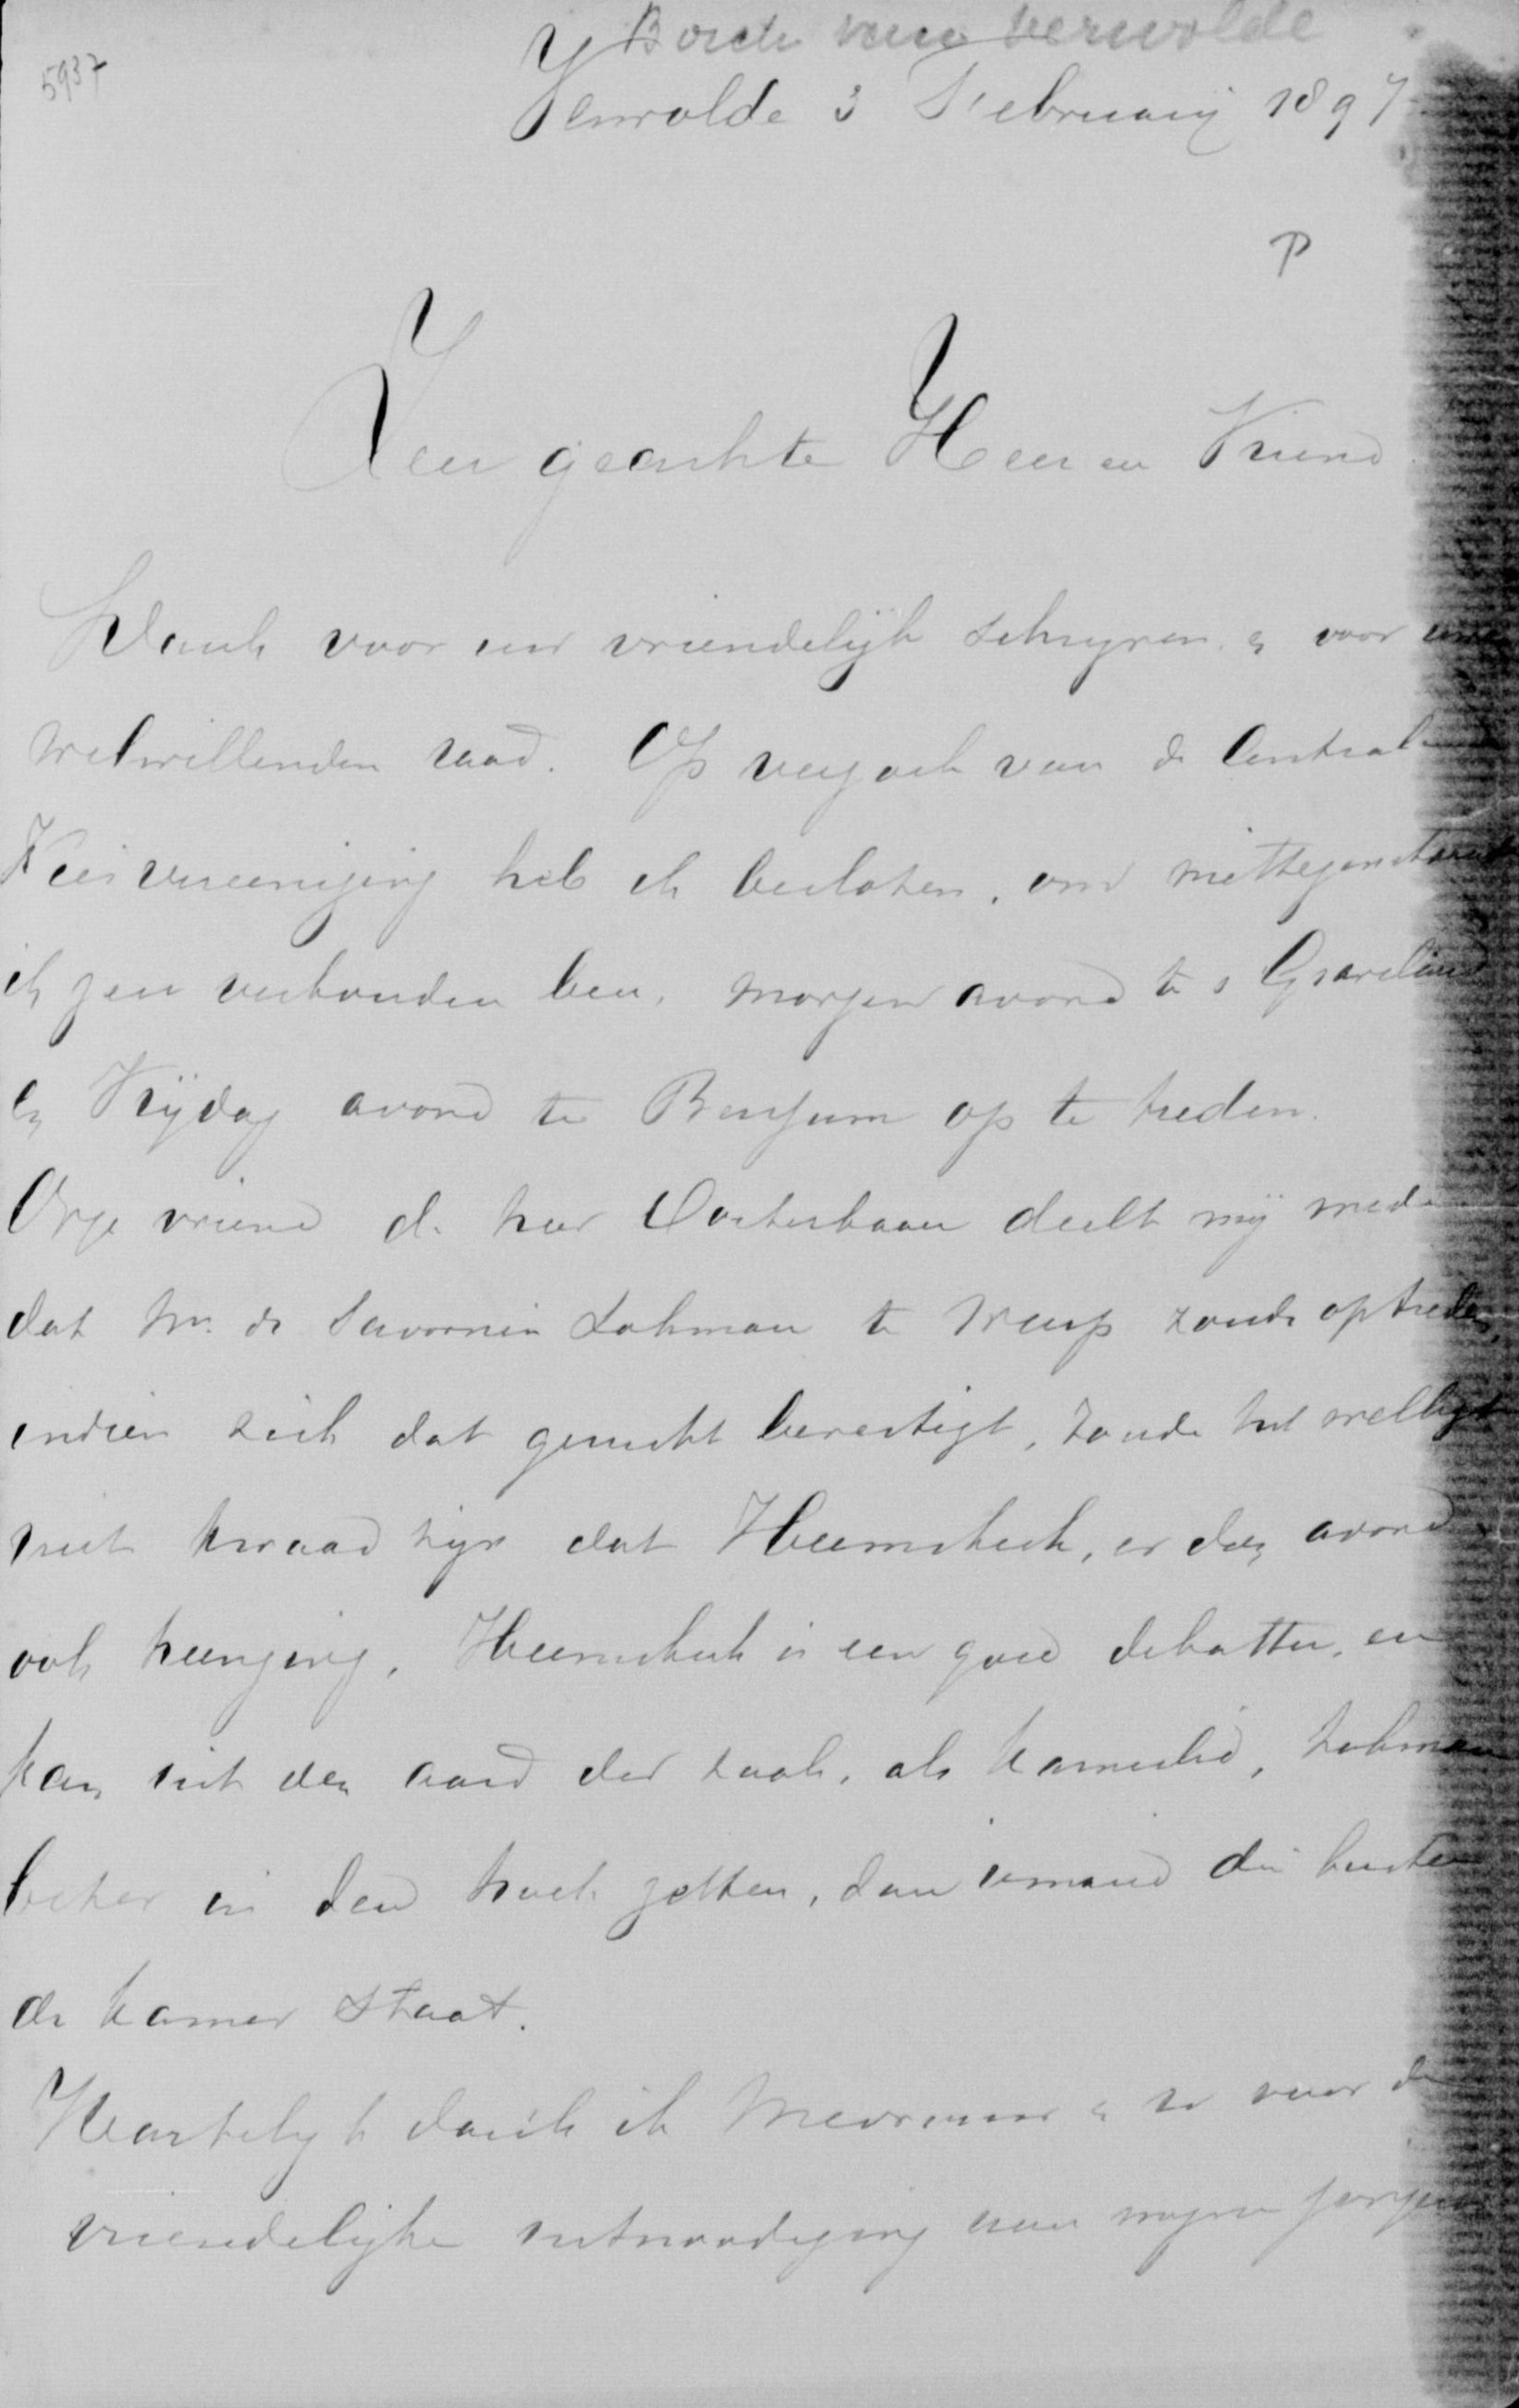 5937
Borch van Verwolde
Verwolde 3 Februarij 1897
P
Zeer geachte Heer en Vriend
Dank voor uw vriendelijk schrijven, en voor uwen
welwillenden raad. Op verzoek van de Centrale
Kiesvereeniging heb ik besloten, om niettegenstaande
ik zeer verkouden ben, morgen avond te s Graveland
en Vrijdag avond te Bussum op te treden.
Onze vriend de heer Oosterbaan deelt mij mede
dat Mr. de Savornin Lohman te Weesp zoude optreden,
indien zich dat gerucht bevestigt, zoude het welligt
niet kwaad zijn dat Heemskerk, er den avond
ook heenging, Heemskerk is een goed debatter, en
kan uit den aard der zaak, als kamerlid, Lohman
beter in den hoek zetten, dan iemand die buiten
de kamer staat.
Hartelijk dank ik Mevrouw en U voor de
vriendelijke uitnoodiging aan mijne jongens